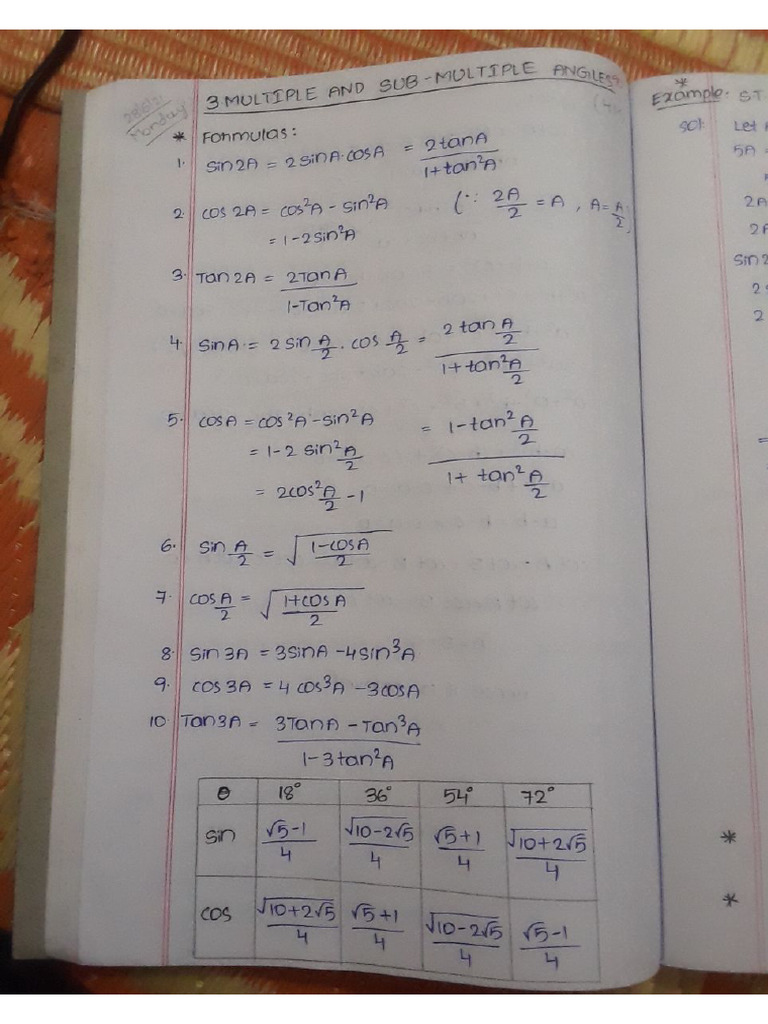 28/6/21
Monday
3 MULTIPLE AND SUB-MULTIPLE ANGLES:
* Formulas:
1. sin2A = 2sinA·cosA = 2tanA / 1+tan²A
2. cos 2A = cos²A - sin²A (∵ 2A/2 = A, A = A/2)
= 1-2sin²A
3. Tan2A = 2TanA / 1-Tan²A
4. sinA = 2 sin A/2 . cos A/2 = 2 tan A/2 / 1+tan² A/2
5. cosA = cos²A - sin²A = 1-tan² A/2 / 1+ tan² A/2
= 1-2 sin² A/2
= 2cos² A/2 - 1
6. sin A/2 = √(1-cosA / 2)
7. cos A/2 = √(1+cosA / 2)
8. sin 3A = 3sinA - 4sin³A
9. cos3A = 4 cos³A - 3cosA
10. Tan3A = 3TanA - Tan³A / 1-3tan²A
θ 18° 36° 54° 72°
sin √5-1 / 4 √10-2√5 / 4 √5+1 / 4 √10+2√5 / 4
cos √10+2√5 / 4 √5+1 / 4 √10-2√5 / 4 √5-1 / 4
*
Example. S.T
Sol: Let
5A =
2A
2A
sin2
2
2
=
*
*